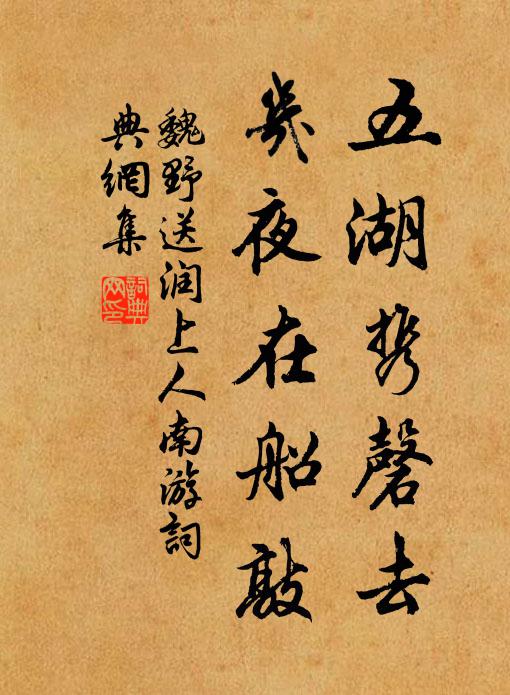 五湖携磬去
几夜在船敲
魏野送润上人南游詞
典網集
詞典网印